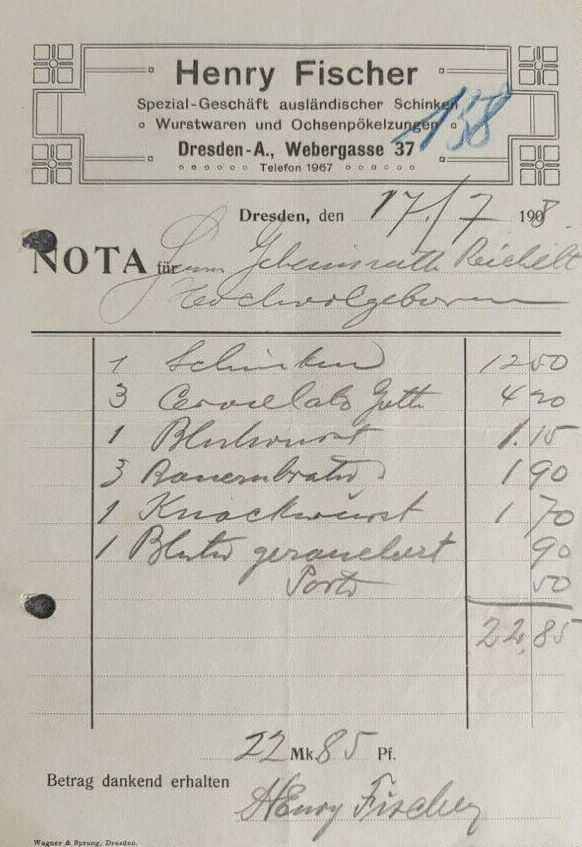 Henry Fischer
Spezial-Geschäft ausländischer Schinken
Wurstwaren und Ochsenpökelzungen
138
Dresden-A., Webergasse 37
Telefon 1967
Dresden, den 17./7 1908
NOTA für Herrn Geheimrath Reichelt
Hochwolgeboren
1 Schinken 12 50
3 Cervelats Goth 4 20
1 Blutwurst 1.15
3 Bauernbratw 1 90
1 Knackwurst 1 70
1 Blutw geräuchert 90
Porto 50
22,85
22 Mk. 85 Pf.
Betrag dankend erhalten
Henry Fischer
Wagner & Sprung, Dresden.